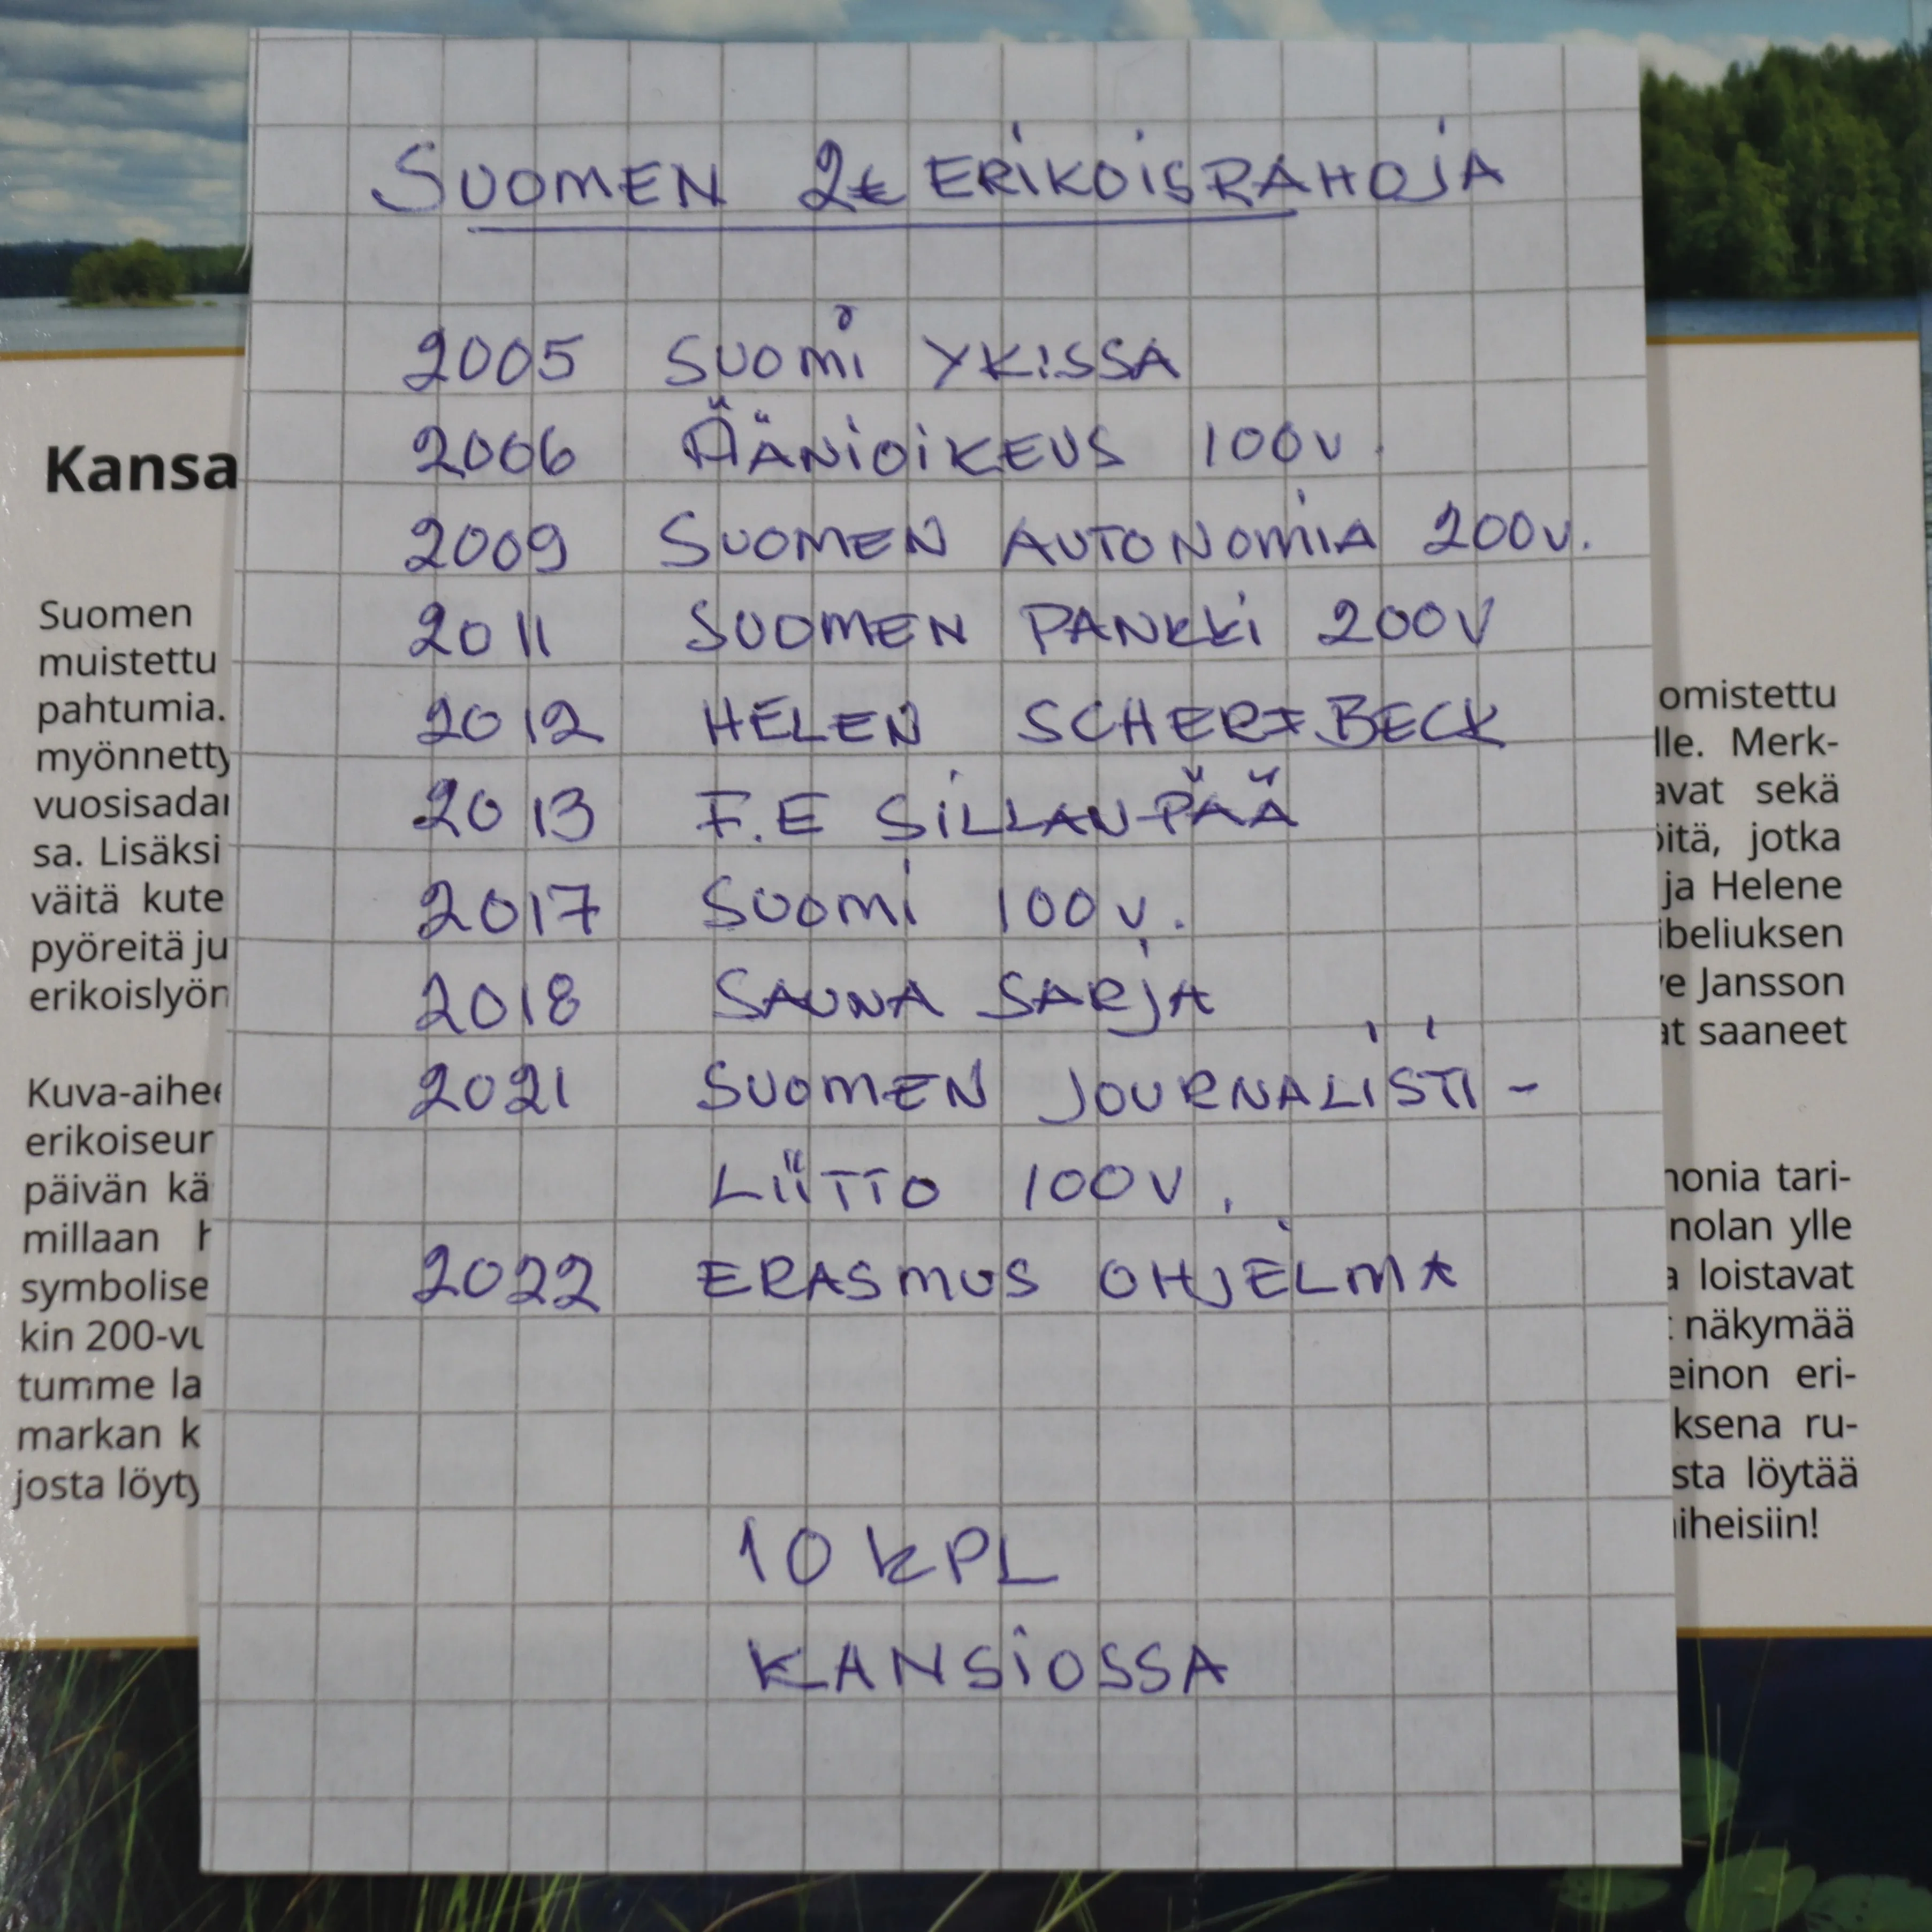 SUOMEN 2€ ERIKOISRAHOJA
2005 SUOMI YKISSA
2006 ÄÄNIOIKEUS 100v.
2009 SUOMEN AUTONOMIA 200v.
2011 SUOMEN PANKKI 200V
2012 HELEN SCHERFBECK
2013 F.E SILLANPÄÄ
2017 SUOMI 100v.
2018 SAUNA SARJA
2021 SUOMEN JOURNALISTI-
LIITTO 100V.
2022 ERASMUS OHJELMA
10 KPL
KANSIOSSA
Kansa
Suomen
muistettu
pahtumia.
myönnetty
sa. Lisäksi
väitä kute
pyöreitä ju
erikoislyön
Kuva-aihee
erikoiseur
päivän kä
millaan
symbolise
kin 200-vu
tumme la
markan k
josta löyty
omistettu
lle. Merk-
avat sekä
öitä, jotka
ja Helene
ibeliuksen
ve Jansson
at saaneet
monia tari-
nolan ylle
a loistavat
näkymää
einon eri-
ksena ru-
sta löytää
aiheisiin!